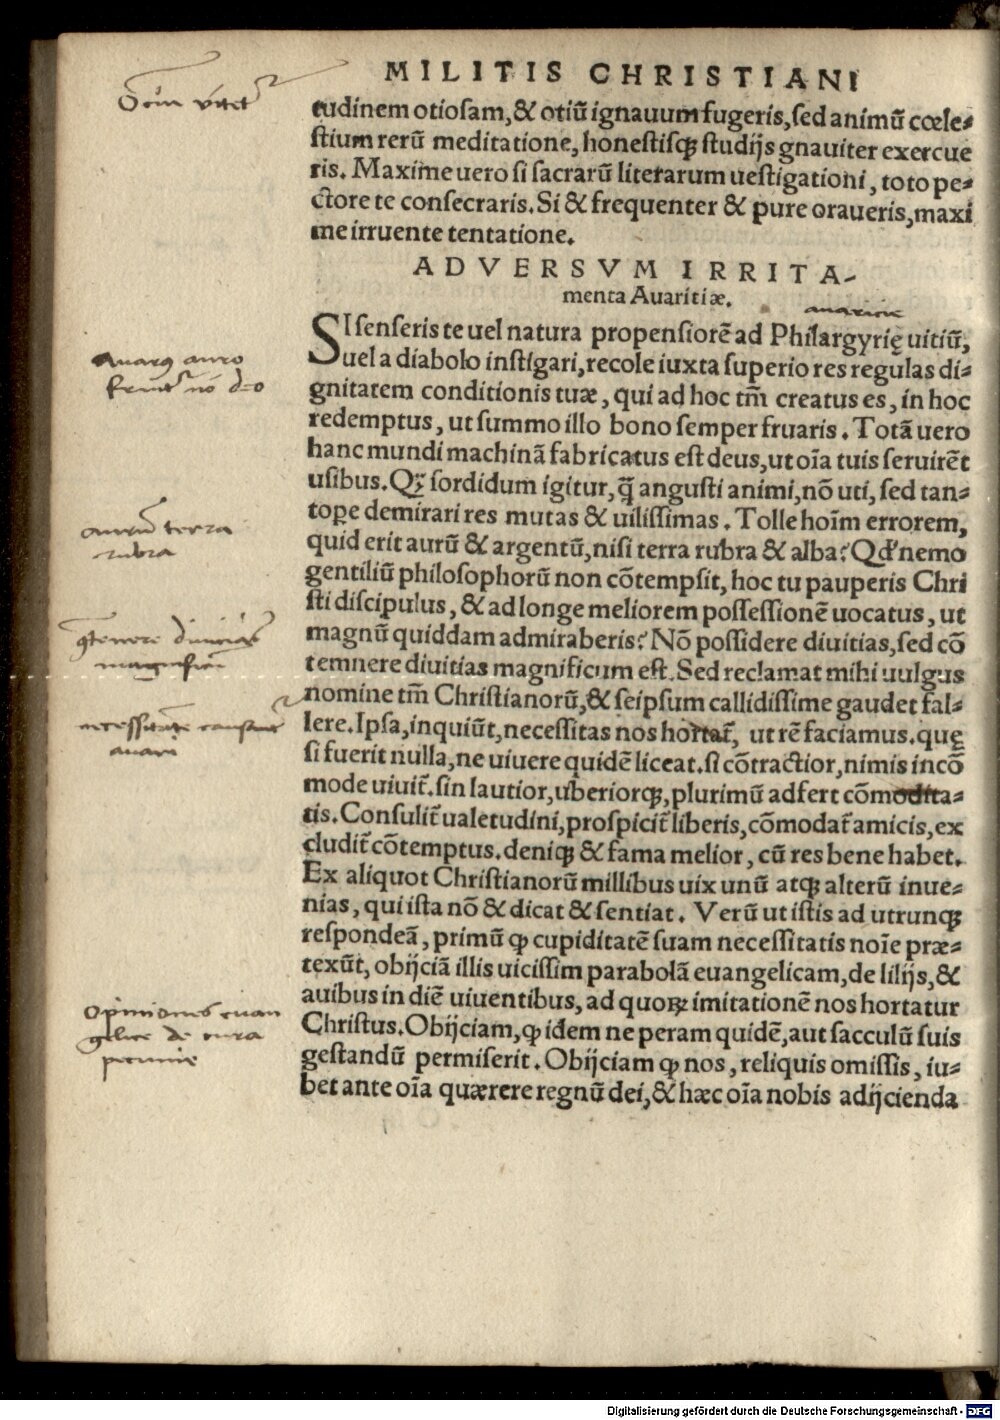 MILITIS CHRISTIANI
tudinem otiosam, & otiũ ignauum fugeris, sed animũ cœle-
stium rerũ meditatione, honestisq; studijs gnauiter exercue
ris. Maxime uero si sacrarũ literarum uestigationi, toto pe-
ctore te consecraris. Si & frequenter & pure oraueris, maxi
me irruente tentatione.
ADVERSVM IRRITA-
menta Auaritiæ.
auaricie
SI senseris te uel natura propensiorẽ ad Philargyrię uitiũ,
uel a diabolo instigari, recole iuxta superiores regulas di-
gnitatem conditionis tuæ, qui ad hoc tm̃ creatus es, in hoc
redemptus, ut summo illo bono semper fruaris. Totã uero
hanc mundi machinã fabricatus est deus, ut oĩa tuis seruirẽt
usibus. Qꝫ sordidum igitur, q̃ angusti animi, nõ uti, sed tan-
tope demirari res mutas & uilissimas. Tolle hoĩm errorem,
quid erit aurũ & argentũ, nisi terra rubra & alba? Qd' nemo
gentiliũ philosophorũ non cõtempsit, hoc tu pauperis Chri
sti discipulus, & ad longe meliorem possessionẽ uocatus, ut
magnũ quiddam admiraberis? Nõ possidere diuitias, sed cõ
temnere diuitias magnificum est. Sed reclamat mihi uulgus
nomine tm̃ Christianorũ, & seipsum callidissime gaudet fal-
lere. Ipsa, inquiũt, necessitas nos hortat̃, ut rẽ faciamus. quę
si fuerit nulla, ne uiuere quidẽ liceat. si cõtractior, nimis incõ
mode uiuit̃. sin lautior, uberiorq;, plurimũ adfert cõmodita-
tis. Consulit̃ ualetudini, prospicit̃ liberis, cõmodat̃ amicis, ex
cludit̃ cõtemptus. deniq; & fama melior, cũ res bene habet.
Ex aliquot Christianorũ millibus uix unũ atq; alterũ inue-
nias, qui ista nõ & dicat & sentiat. Verũ ut istis ad utrunq;
respondeã, primũ ꝙ cupiditatẽ suam necessitatis noĩe præ-
texũt, obijciã illis uicissim parabolã euangelicam, de lilijs, &
auibus in diẽ uiuentibus, ad quoꝝ imitationẽ nos hortatur
Christus. Obijciam, ꝙ idem ne peram quidẽ, aut sacculũ suis
gestandũ permiserit. Obijciam ꝙ nos, reliquis omissis, iu-
bet ante oĩa quærere regnũ dei, & hæc oĩa nobis adijcienda
auarus auro
aurũ terra
rubra
diuicias
auari
Opiniones euan
gelice de cura
pecunie
Digitalisierung gefördert durch die Deutsche Forschungsgemeinschaft - DFG